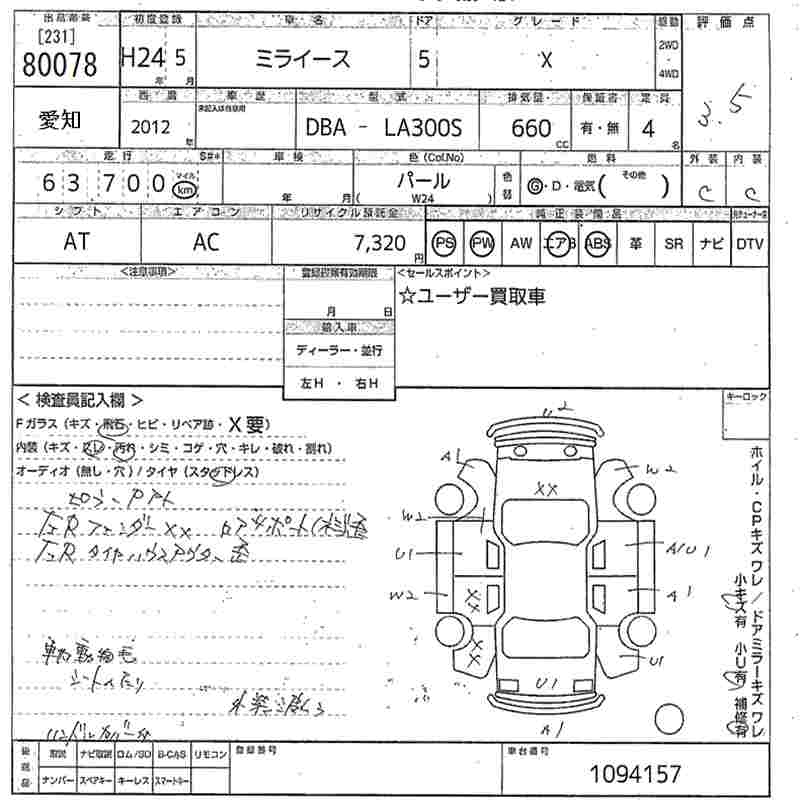 出品番号 初度登録 車名 ドア グレード 駆動 評価点
[231] 80078 H24年 5月 ミライース 5 X 2WD・4WD 3.5
西暦 車歴 型式 排気量 保証書 定員
愛知 2012年 未記入は自家用 DBA - LA300S 660cc 有・無 4名
走行 S#* 車検 色(Col.No) 燃料 外装 内装
63,700 マイル km 年 月 パール (W24) 色替 G・D・電気 (その他) C C
シフト エアコン リサイクル預託金 純正装備品
AT AC 7,320円 PS PW AW エアB ABS 革 SR ナビ DTV
<注意事項> 登録書類有効期限 <セールスポイント>
月 日 ☆ユーザー買取車
輸入車
ディーラー・並行
左H ・ 右H
< 検査員記入欄 > キーロック
Fガラス (キズ・飛石・ヒビ・リペア跡・X要)
内装 (キズ・スレ・汚れ・シミ・コゲ・穴・キレ・破れ・割れ)
オーディオ (無し・穴) / タイヤ (スタッドレス)
左R フェンダーXX
左R タイヤハウスアウター歪
車内動物毛
2
A1 W2
XX
W2
U1 A/U1
W2 XX A1
XX U1
U1
A1
ホイル・CPキズ ワレ / ドアミラーキズ ワレ
小キズ有 小U有 補修有
後送品 取説 ナビ取説 ロム/SD B-CAS リモコン 登録番号 車台番号
ナンバー スペアキー キーレス スマートキー 1094157